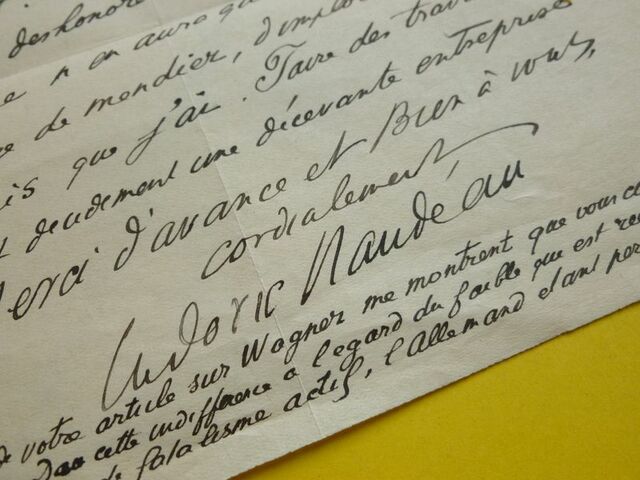 deshonore
n'en aura que
de mendier, d'implo
is que j'ai. Faire des trav
decidement une décevante entreprise
Merci d'avance et Bien à vous,
cordialement,
Ludovic Naudeau
de votre article sur Wagner me montrent que vous co
cette indifférence à l'egard du faible que est
de fatalisme actif, l'Allemand etant per